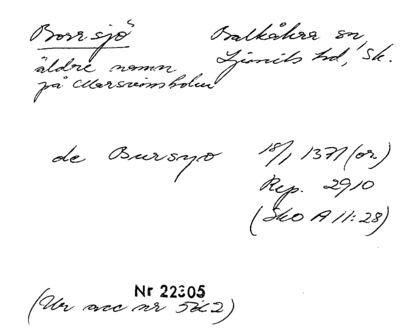 Borrsjö
Balkåkra sn,
Ljunits hd, Sk.
äldre namn
på Marsvinsholm
de Bursyo
18/1 1371 (or)
Rep. 2910
(SkO A 11:28)
Nr 22305
(Ur acc nr 562)